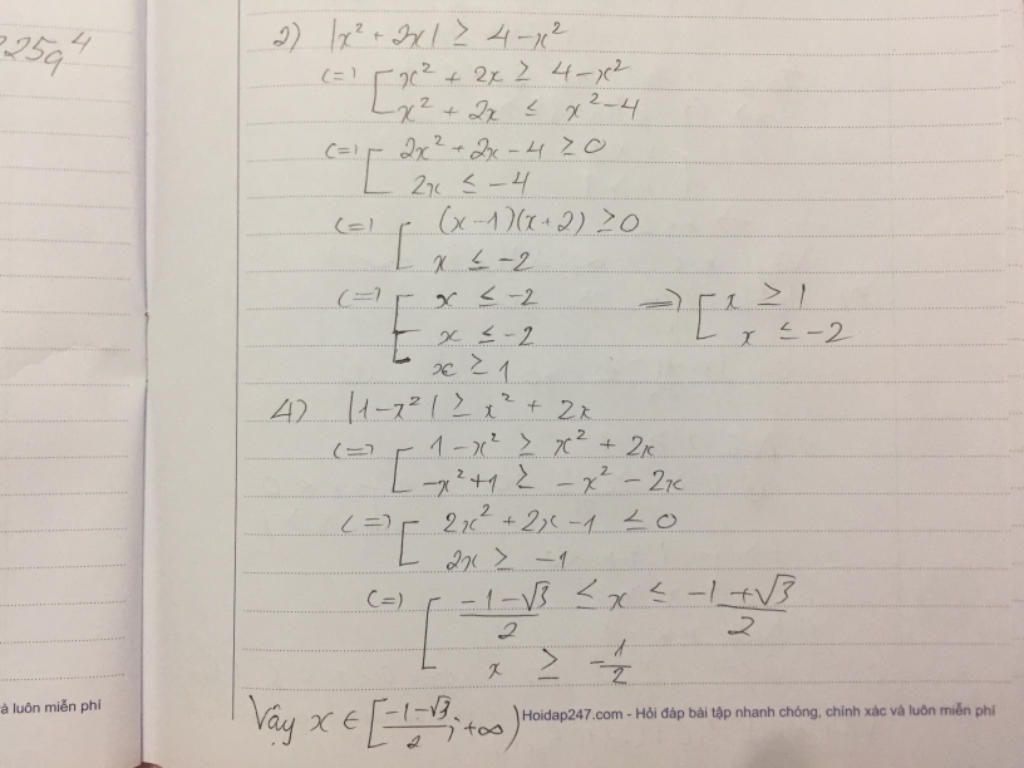 225a⁴
2) |x² + 2x| ≥ 4 - x²
(=) [ x² + 2x ≥ 4 - x²
x² + 2x ≤ x² - 4
(=) [ 2x² + 2x - 4 ≥ 0
2x ≤ -4
(=) [ (x - 1)(x + 2) ≥ 0
x ≤ -2
(=) [ x ≤ -2
x ≤ -2
x ≥ 1
=> [ x ≥ 1
x ≤ -2
4) |1 - x²| ≥ x² + 2x
(=) [ 1 - x² ≥ x² + 2x
-x² + 1 ≥ -x² - 2x
(=) [ 2x² + 2x - 1 ≤ 0
2x ≥ -1
(=) [ (-1-√3)/2 ≤ x ≤ (-1+√3)/2
x ≥ -1/2
Vậy x ∈ [(-1-√3)/2; +∞)
à luôn miễn phí
Hoidap247.com - Hỏi đáp bài tập nhanh chóng, chính xác và luôn miễn phí